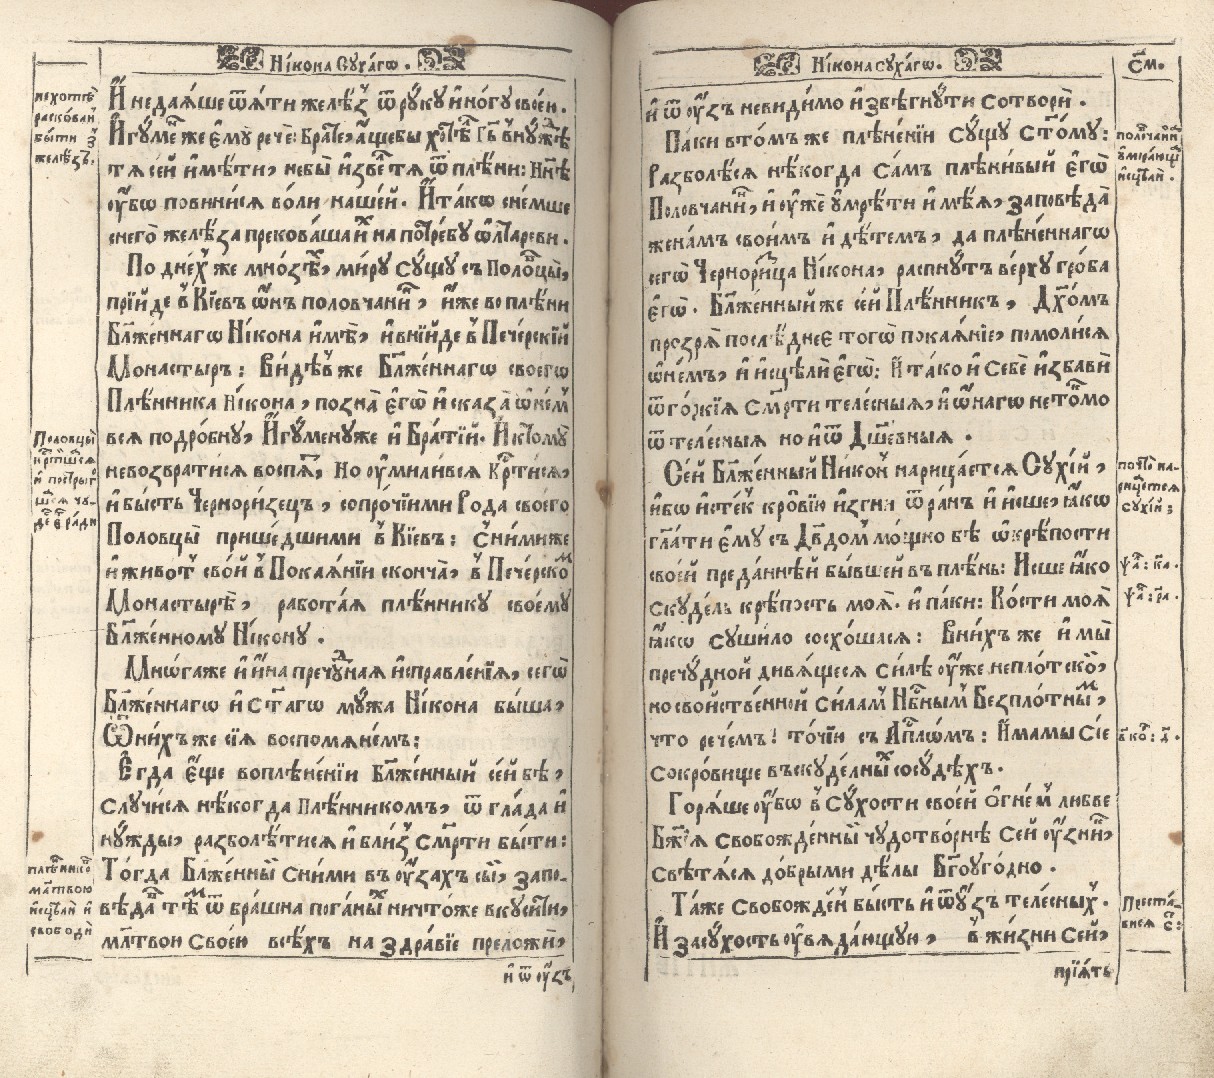 Нікона Сухагѡ.
не хотѣ
раскован
быти ѿ
желѣзъ,
И недаѧше ѿѧти желѣз̾ ѿ руку и ногу своею.
Игуме͠ же ему рече: Братіе, аще бы хотѣ͠ Гь҃ в̾ нуждѣ
тѧ сей имѣти, не бы извѣ͠тѧ ѿ плѣни: Ннѣ
ѹбѡ повинисѧ воли нашей. И такѡ снемше
с него желѣза прековаша и͠х на потребу ѡлтареви.
По дне͠х же мнозѣ͠х, миру сущу съ Половцы,
прійде в̾ Кіевъ ѡнъ половчани͠н, иже во плѣни
Блж҃еннагѡ Нікона имѣ, и внійде в̾ Печерскій
Монастыръ: Видѣв̾ же Блж҃еннаго своегѡ
Плѣнника Нікона, позна егѡ и сказа ѡ нем̾
всѧ подробну, Игумену же и Братіи. И ктому
не возвратисѧ воспѧ͠т, Но ѹмиливсѧ Кр҃тисѧ,
и бысть Черноризец̾, со прочіими Рода своего
Половцы пришедшими в̾ Кіевъ: С ними же
и живот̾ свой в̾ Покаѧніи сконча, в̾ Печерско͠м
Монастырѣ, работаѧ плѣннику своему
Блж҃енному Нікону.
Половцы
кр҃тишасѧ
и постриг
шасѧ чу-
де͠с ради
Многаже и ина пречуднаѧ исправленіѧ, сегѡ
Блж҃еннагѡ и Ст҃агѡ мужа Нікона быша,
Ѿ нихъ же сіѧ воспомѧнемъ:
Егда еще во плѣненіи Блж҃енный сей бѣ,
случисѧ нѣкогда Плѣнникомъ, ѿ глада и
нужды, разболѣтисѧ и близ̾ См҃рти быти:
Тогда Блж҃енны͠й с ними въ ѹзахъ сы͠й, запо-
вѣда͠в тѣ͠м ѿ врашна поганы͠х ничтоже вкусити,
мл҃твою Своею всѣхъ на здравіе преложи,
плѣннико
мл҃твою
исцѣли и
свободи
и ѿ ѹзъ
Нікона Сухагѡ.
См҃.
и ѿ ѹзъ невидимо избѣгнути сотвори.
Паки в томъ же плѣненіи сущу ст҃ому:
Разболѣсѧ нѣкогда самъ плѣнивый егѡ
Половчани͠н, и ѹже умрѣти имѣѧ, заповѣда
женамъ своимъ и дѣтемъ, да плѣненнагѡ
сегѡ Черноризца Нікона, распнутъ верху гроба
егѡ. Блж҃енный же сей Плѣнникъ, Дх҃омъ
прозрѧ послѣднее тогѡ покаѧніе, помолисѧ
ѡ немъ, и исцѣли егѡ: И тако и Себе избави
ѿ горкіѧ См҃рти телесныѧ, и ѡнаго не токмо
ѿ телесныѧ но и ѿ Дш҃евныѧ.
половчани͠н
умирающ
исцѣли.
Сей Блж҃енный Нікон̾ нарицаетсѧ Сухій,
ибѡ истек̾ кровію изгни ѿ ранъ и исше, ꙗкѡ
гл҃ати ему съ Дв҃дом̾ мощно бѣ ѡ крѣпости
своей преданнѣй бывшей въ плѣнъ: Исше ꙗко
скудель крѣпость моѧ. и паки: Кости моѧ
ꙗкѡ сушило сосхошасѧ: В них̾ же и мы
пречудной дивѧщесѧ силѣ ѹже не плотско͠й,
но свойственной силам̾ Нб҃ным̾ Безплотны͠м,
что речемъ! точіи съ Апл҃ѡм̾: Имамы Сіе
сокровище въ скудельны͠х сосудѣхъ.
почто на-
рицаетсѧ
сухій;
ѱа͠л: ка.
ѱа͠л: ра.
в̾ ко͠р: д.
Горѧше ѹбѡ в̾ Сухости своей огнем̾ любве
Бж҃іѧ свобожденны͠й чудотворнѣ Сей ѹзни͠к,
свѣтѧсѧ добрыми дѣлы Бг҃оугодно.
Таже свобожден̾ бысть и ѿ ѹзъ телесных̾.
И за сухость ѹвѧдающую, в̾ жизни сей,
Преста-
висѧ с͠:
пріѧтъ